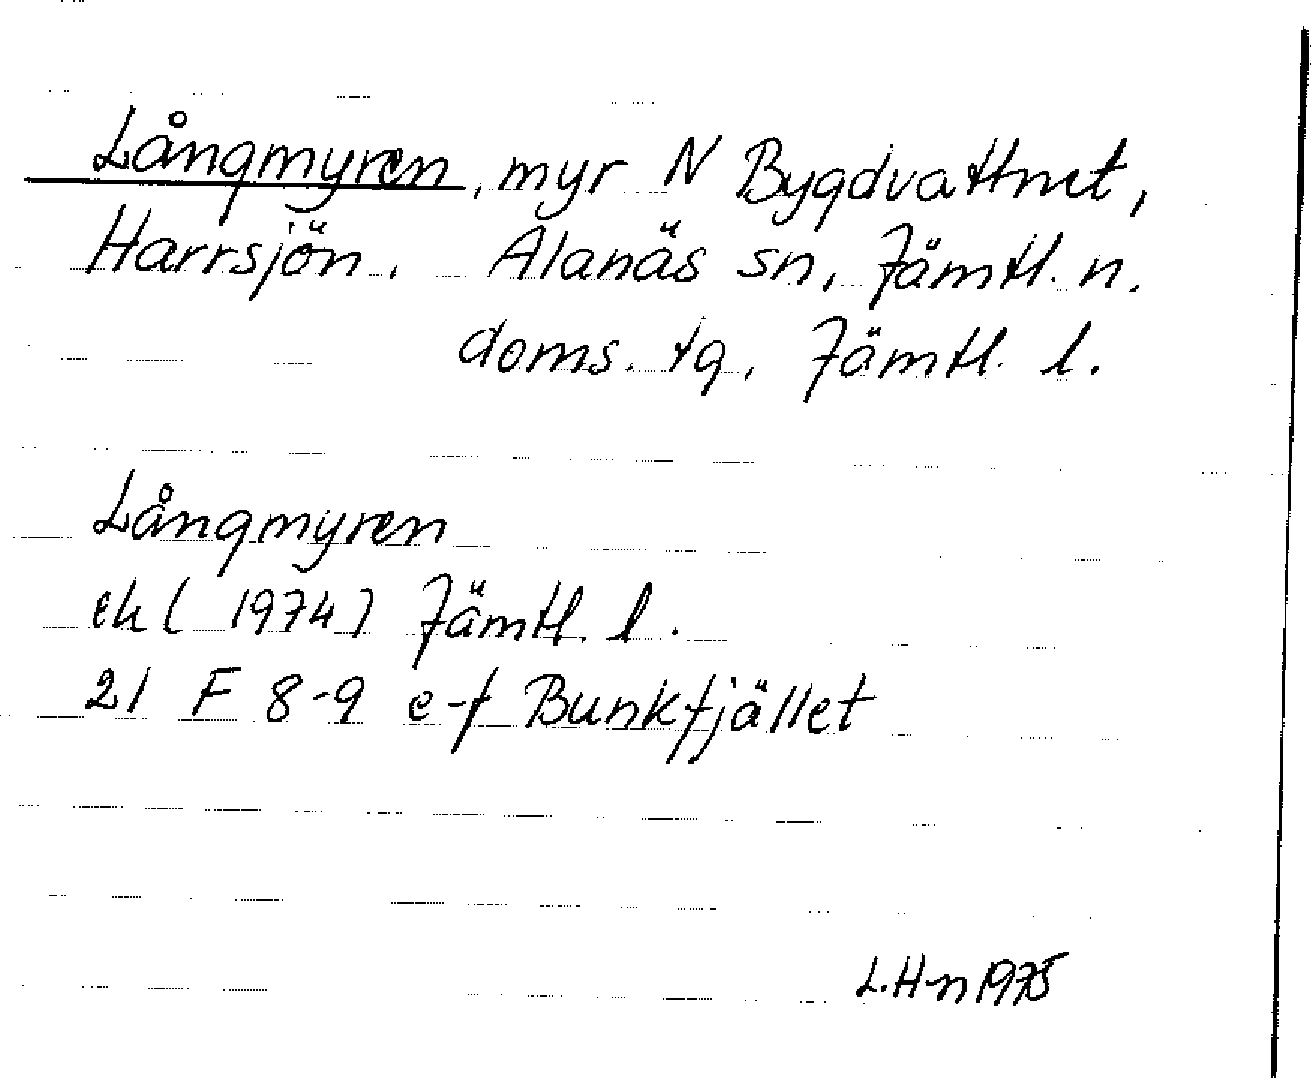 Långmyren, myr N Bygdvattnet,
Harrsjön. Alanäs sn, Jämtl. n.
doms. tg, Jämtl. l.
Långmyren
ek (1974) Jämtl. l.
21 F 8-9 e-f Bunkfjället
L.H-n 1975